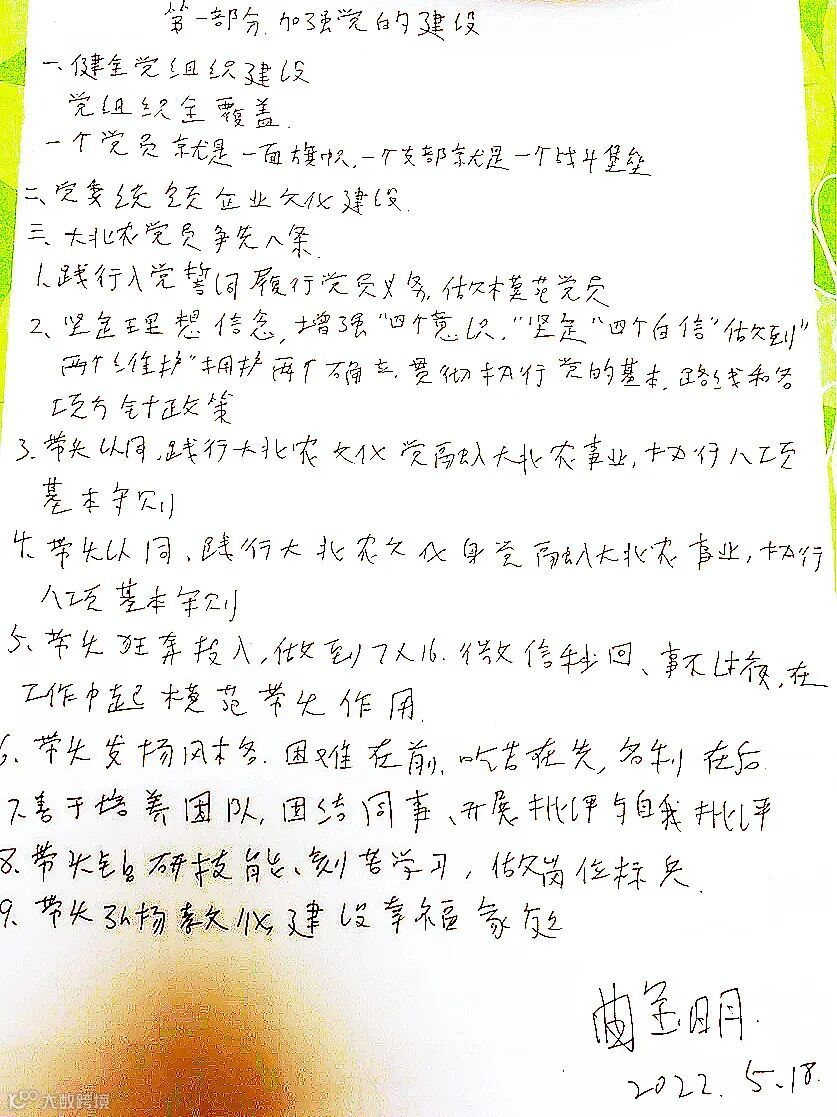 第一部分.加强党的建设
一、健全党组织建设
党组织全覆盖.
一个党员就是一面旗帜,一个支部就是一个战斗堡垒
二、党委统领企业文化建设.
三、大北农党员争先八条.
1.践行入党誓词履行党员义务,做模范党员
2、坚定理想信念,增强"四个意识,"坚定"四个自信"做到"
两个维护"拥护两个确立.贯彻执行党的基本.路线和各
项方针政策
3、带头认同,践行大北农文化党融入大北农事业,执行八项
基本守则
4、带头认同、践行大北农文化自觉融入大北农事业,执行
八项基本守则
5、带头狂奔投入,做到7X16.微信秒回、事不过夜,在
工作中起模范带头作用.
6、带头发扬风格.困难在前,吃苦在先,名利在后.
7.善于培养团队,团结同事、开展批评与自我批评
8、带头钻研技能、刻苦学习,做岗位标兵.
9、带头弘扬孝文化,建设幸福家庭
曲金明.
2022.5.18.
大数跨境